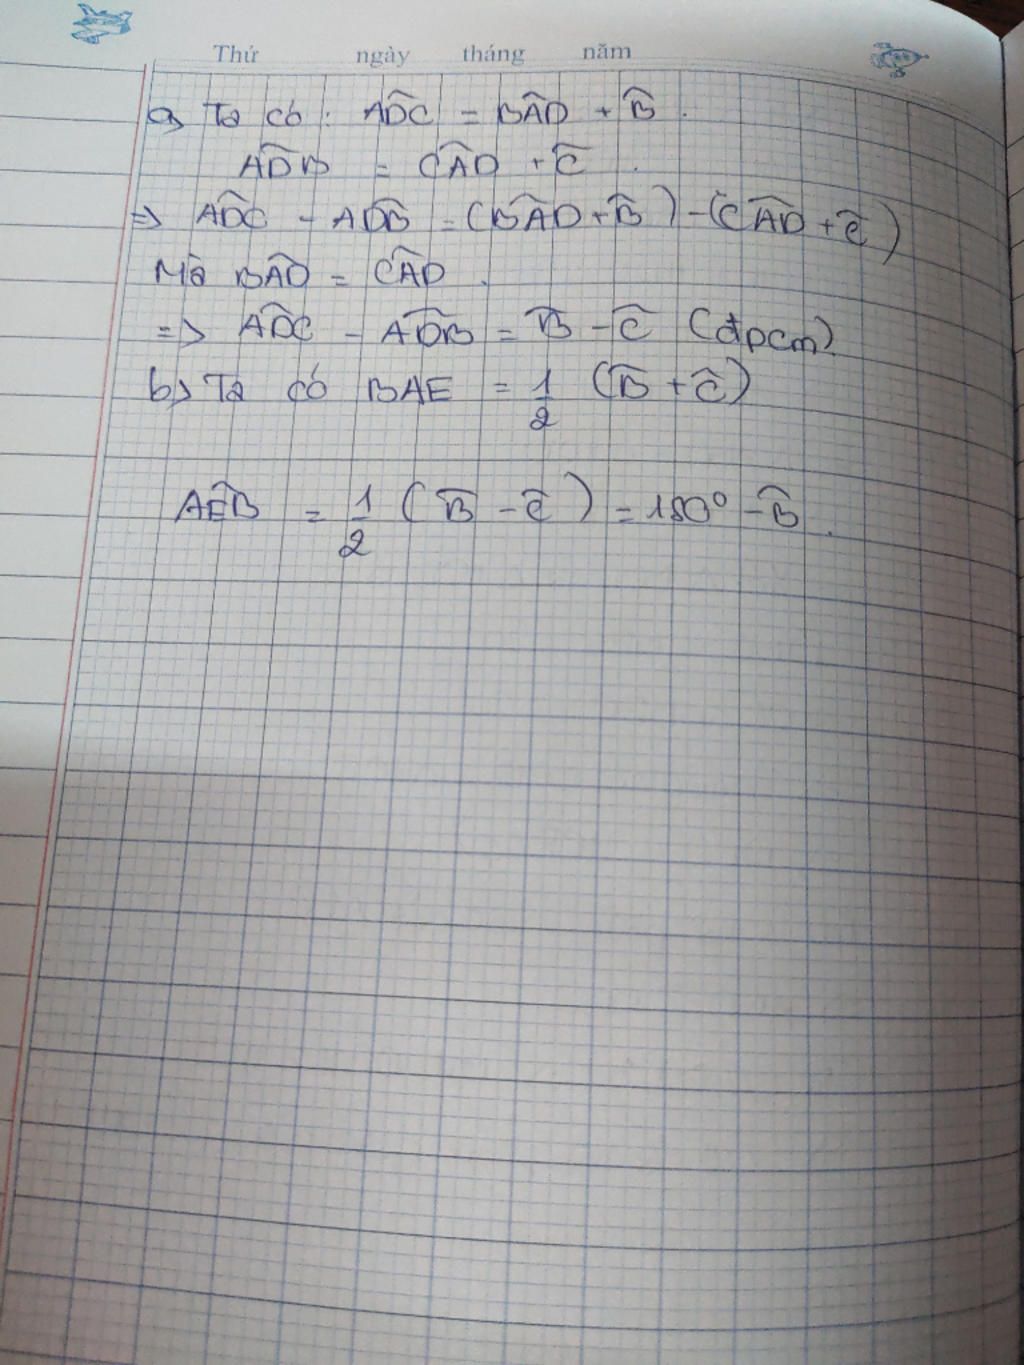 Thứ ngày tháng năm
a) Ta có: \widehat{ADC} = \widehat{BAD} + \widehat{B}.
\widehat{ADB} = \widehat{CAD} + \widehat{C}.
=> \widehat{ADC} - \widehat{ADB} = (\widehat{BAD} + \widehat{B}) - (\widehat{CAD} + \widehat{C})
Mà \widehat{BAD} = \widehat{CAD}.
=> \widehat{ADC} - \widehat{ADB} = \widehat{B} - \widehat{C} (đpcm).
b) Ta có BAE = \frac{1}{2} (\widehat{B} + \widehat{C})
\widehat{AEB} = \frac{1}{2} (\widehat{B} - \widehat{C}) = 180° - \widehat{B}.